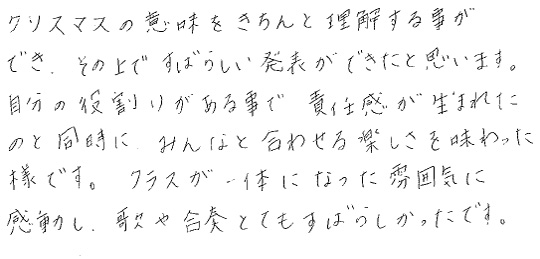 クリスマスの意味をきちんと理解する事が
でき、その上ですばらしい発表ができたと思います。
自分の役割りがある事で 責任感が生まれた
のと同時に、みんなと合わせる楽しさを味わった
様です。 クラスが一体になった雰囲気に
感動し、歌や合奏とてもすばらしかったです。